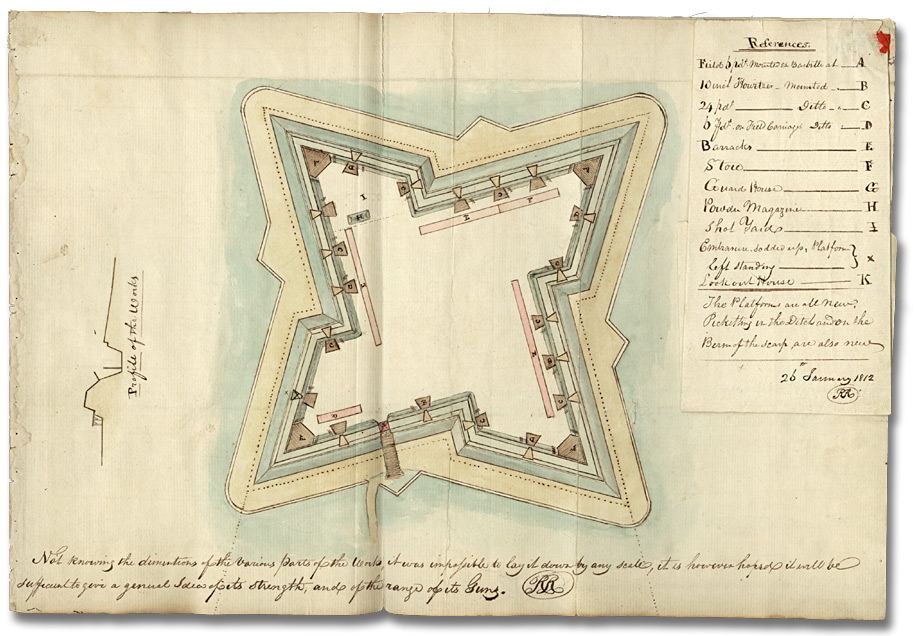 References.
Field 6 pdr. Mounted en Barbette at A
10 inch Howitzer - Mounted B
24 pdr Ditto C
6 pdr. on Field Carriages Ditto D
Barracks E
Store F
Guard House G
Powder Magazine H
Shot Yards I
Entrance sodded up, Platform
left standing x
Look out House K
The Platforms are all New.
Picketting in the Ditch and on the
Berm of the scarp are also new
26 January 1812
RR
Profile of the Works
Not knowing the dimentions of the Various Parts of the Works, it was impossible to lay it down by any scale, it is however hoped it will be
sufficient to give a general Idea of its strength, and of the range of its Guns. RR